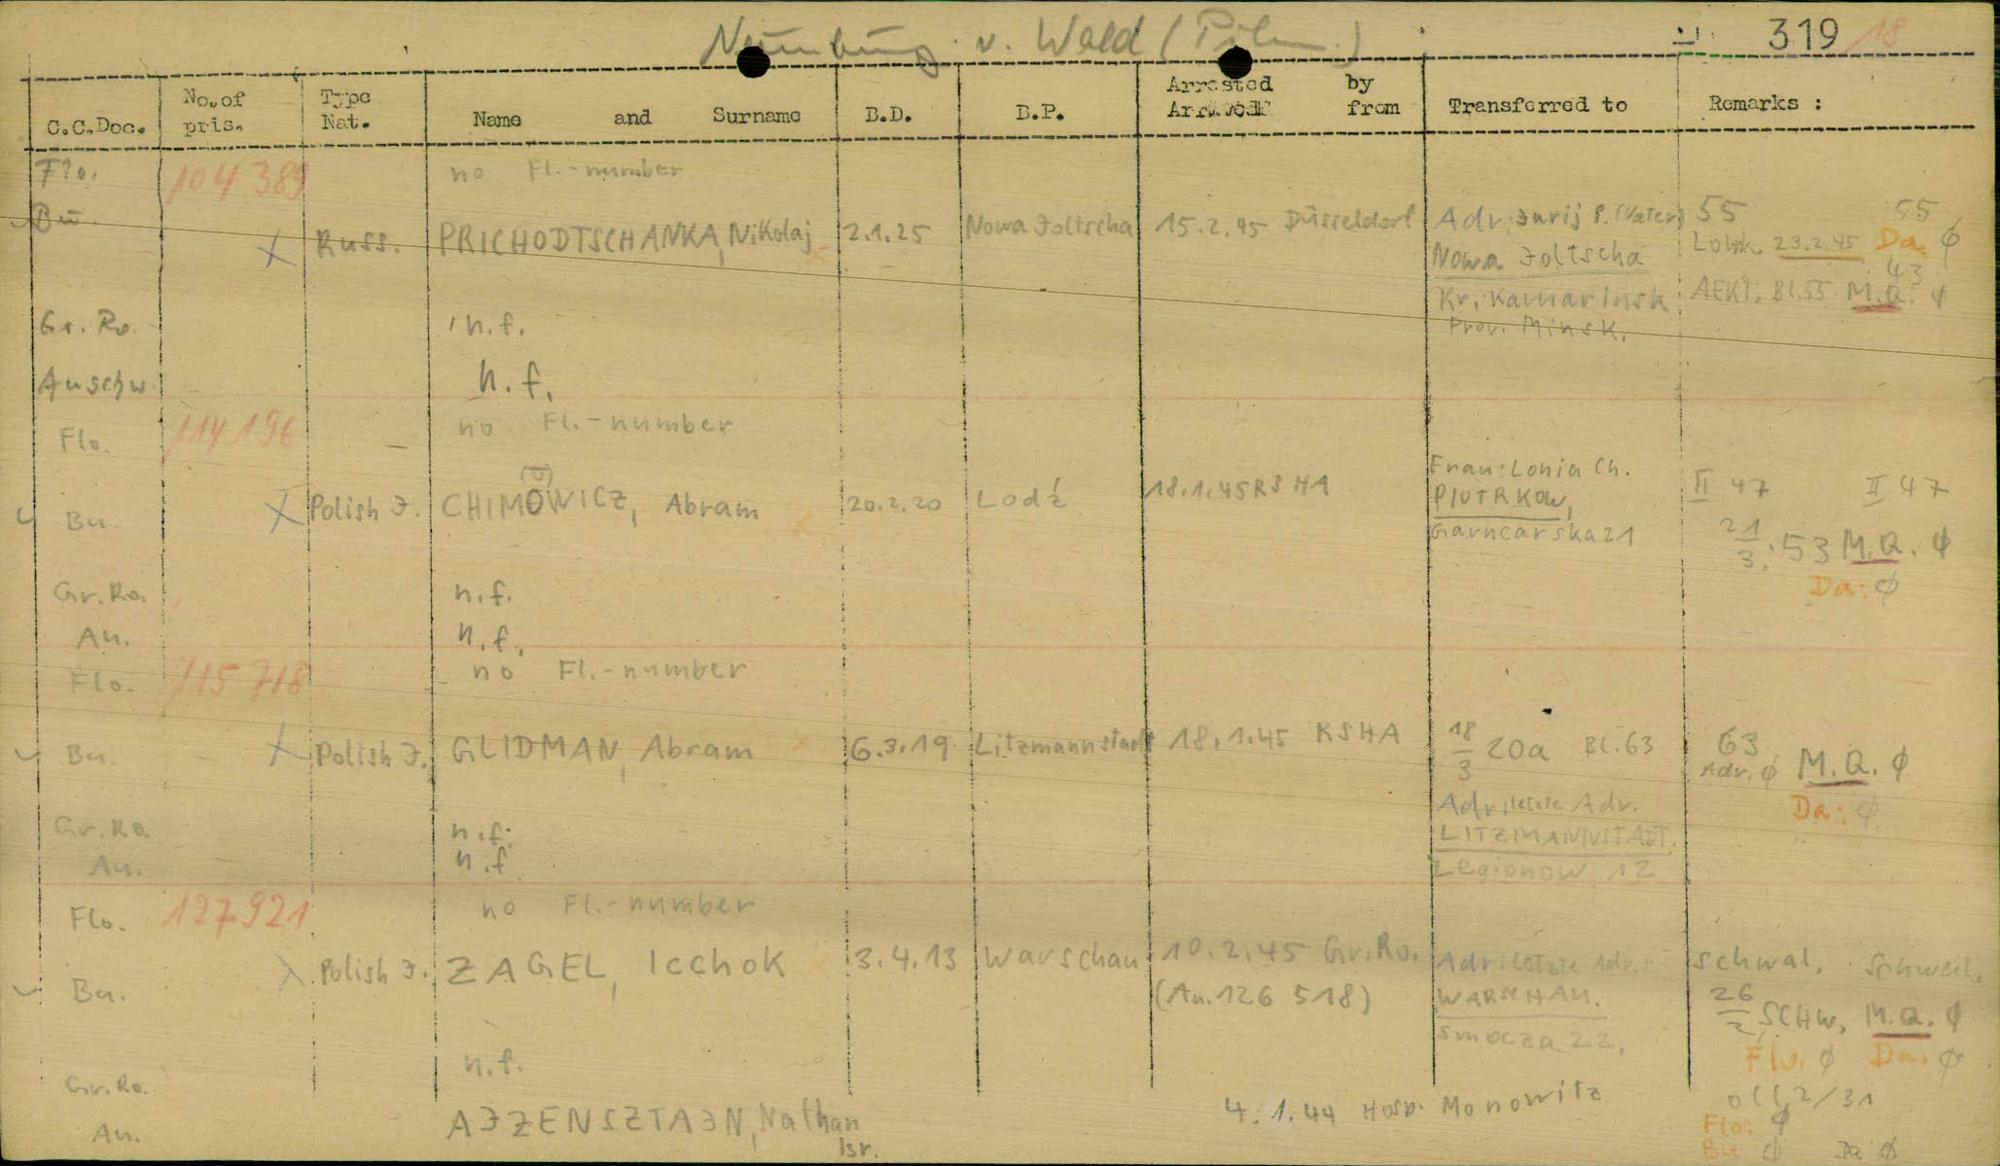 Neunburg v. Wald (
319 18
C.C.Doc. No.of pris. Type Nat. Name and Surname B.D. B.P. Arrested by from Transferred to Remarks :
Flo. 104 389 no Fl.-number
Bu. X Russ. PRICHODTSCHANKA, Nikolaj 2.1.25 Nowa Joltscha 15.2.45 Düsseldorf Adr. Jurij P. (Vater) 55 55
Nowa Joltscha 23.2.45 Da Ø
Kr. Kamarinsk Bl.55 M.Q. Ø 43
Prov. Minsk.
Gr. Ro. n.f.
Auschw. n.f.
Flo. 114 196 — no Fl.-number
(U)
Bu X Polish J. CHIMOWICZ, Abram 20.2.20 Lodź 18.1.45 RSHA Frau: Lonia Ch. II 47 II 47
PIOTRKOW,
Garncarska 21 21/3: 53 M.Q. Ø
Da: Ø
Gr. Ro. n.f.
Au. n.f.
Flo. 115 718 no Fl.-number
Bu. X Polish J. GLIDMAN, Abram 6.3.19 Litzmannstadt 18.1.45 RSHA 18/3 20a Bl. 63 63
Adr. Ø M.Q. Ø
Adr: letzte Adr. Da: Ø
LITZMANNSTADT.
Legionow 12
Gr. Ro. n.f.
Au. n.f.
Flo. 127921 no Fl.-number
Bu. X Polish J. ZAGEL, Icchok 3.4.13 Warschau 10.2.45 Gr.Ro. Adr: letzte Adr.: Schwal.
(Au. 126 518) WARSCHAU. 26/2 SCHW. M.Q. Ø
Smocza 22. Flo. Ø Da. Ø
Gr. Ro. n.f.
Au. AJZENSZTAJN, Nathan Isr. 4.1.44 Hosp. Monowitz 2/31
Flo: Ø
Bu Ø Da Ø